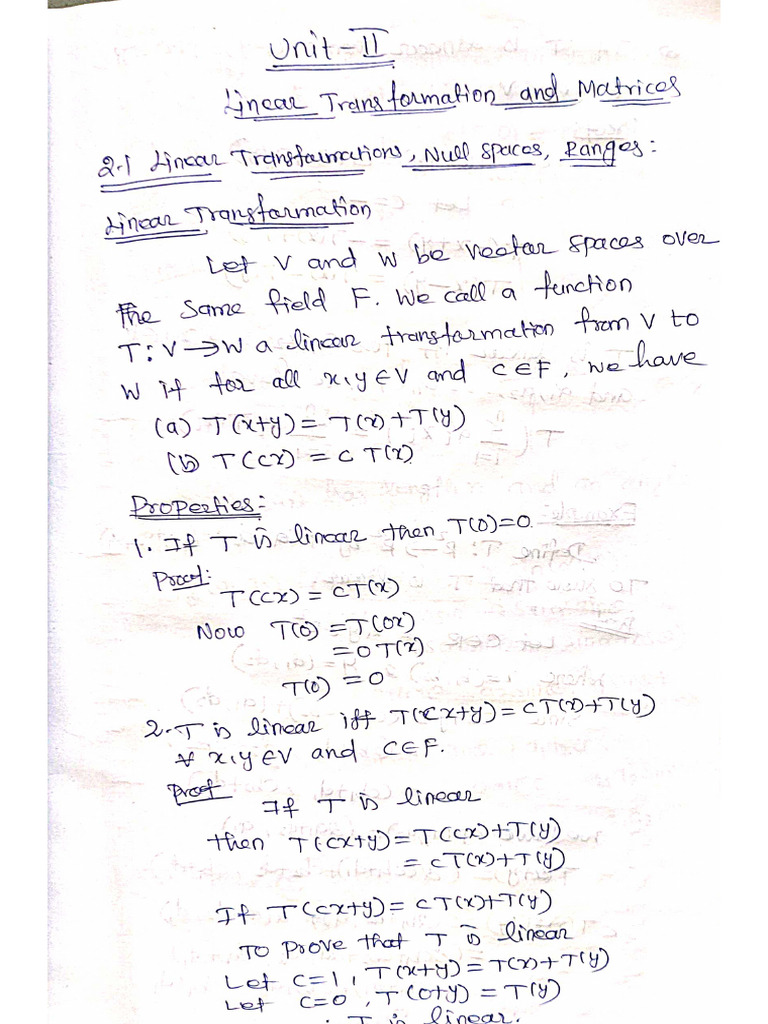 Unit-II
Linear Transformation and Matrices
2.1 Linear Transformations, Null spaces, Ranges:
Linear Transformation
Let V and W be vector spaces over
the same field F. We call a function
T:V→W a linear transformation from V to
W if for all x,y∈V and C∈F, we have
(a) T(x+y) = T(x)+T(y)
(b) T(cx) = c T(x)
Properties:
1. If T is linear then T(0)=0
Proof:
T(cx) = cT(x)
Now T(0) = T(0x)
= 0 T(x)
T(0) = 0
2. T is linear iff T(cx+y) = cT(x)+T(y)
∀ x,y∈V and C∈F.
Proof
If T is linear
then T(cx+y) = T(cx)+T(y)
= cT(x)+T(y)
If T(cx+y) = cT(x)+T(y)
To prove that T is linear
Let c=1, T(x+y) = T(x)+T(y)
Let c=0, T(0+y) = T(y)
∴ T is linear.